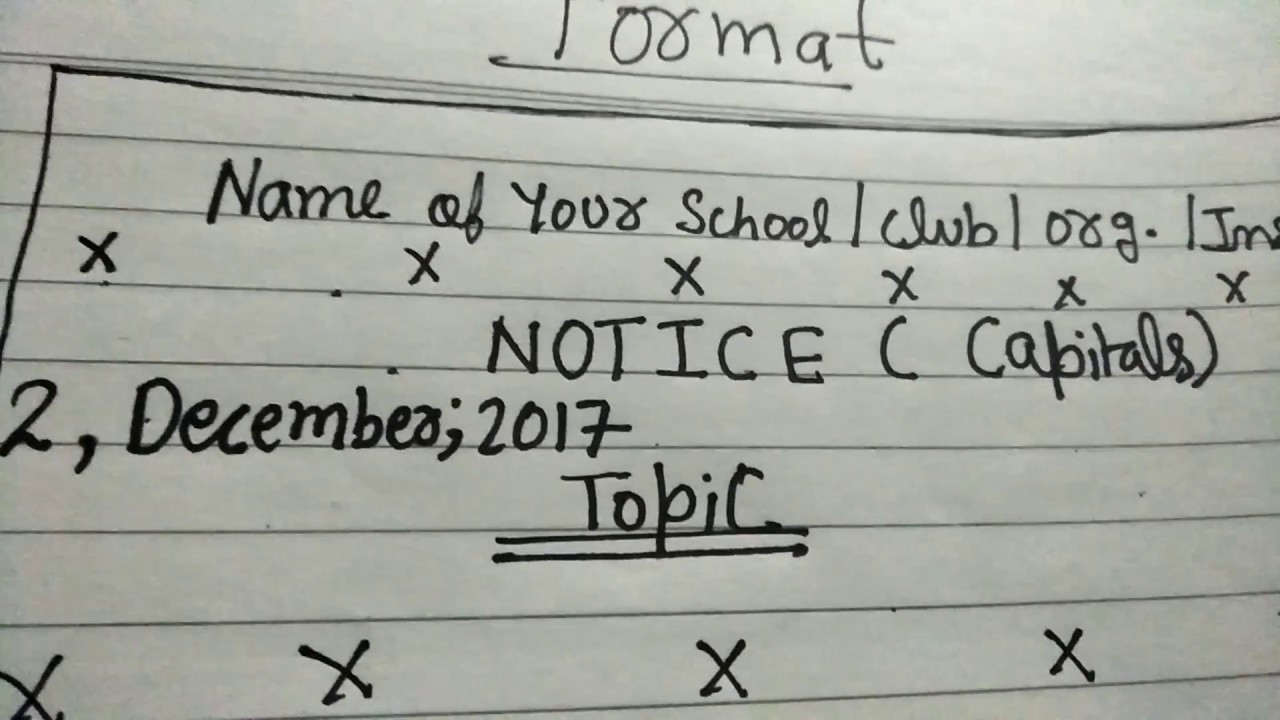 Format
Name of Your School / Club / org. / Ins
X X X X X X
NOTICE ( Capitals)
2, December; 2017
Topic
X X X X